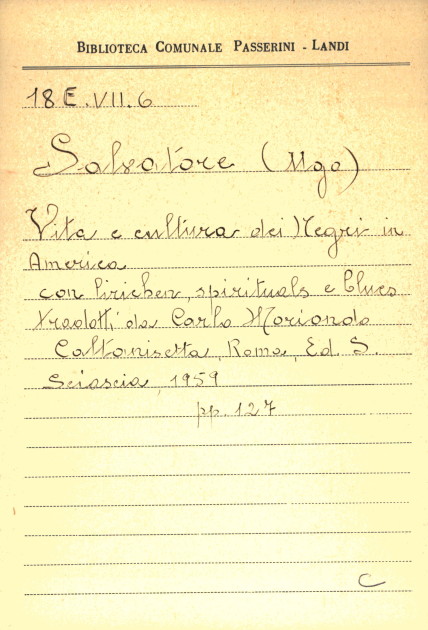 BIBLIOTECA COMUNALE PASSERINI - LANDI
18 E. VII. 6
Salvatore (Ugo)
Vita e cultura dei Negri in
America
con liriche, spirituals e blues
tradotti da Carlo Moriondo
Caltanisetta, Roma, Ed. S.
Sciascia, 1959
pp. 127
C